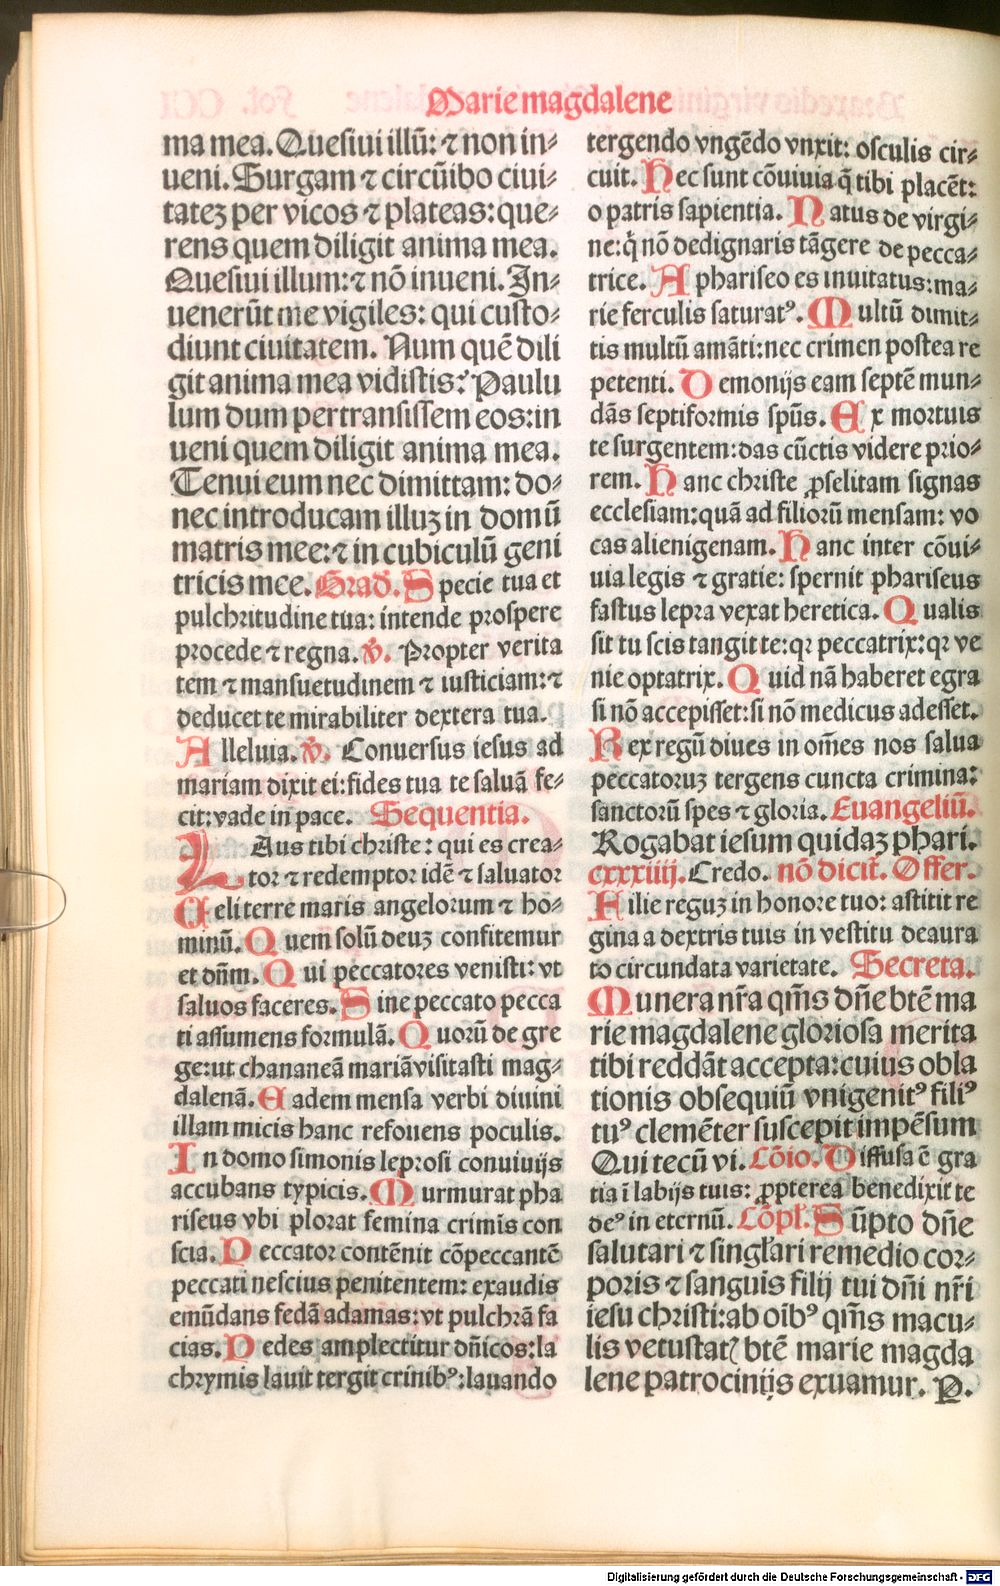 Marie magdalene
ma mea. Quesiui illū: ⁊ non in⸗
ueni. Surgam ⁊ circūibo ciui⸗
tatez per vicos ⁊ plateas: que⸗
rens quem diligit anima mea.
Quesiui illum: ⁊ nō inueni. In⸗
uenerūt me vigiles: qui custo⸗
diunt ciuitatem. Num quē dili
git anima mea vidistis? Paulu
lum dum pertransissem eos: in
ueni quem diligit anima mea.
Tenui eum nec dimittam: do⸗
nec introducam illuz in domū
matris mee: ⁊ in cubiculū geni
tricis mee. Grad. Specie tua et
pulchritudine tua: intende prospere
procede ⁊ regna. ℣. Propter verita
tem ⁊ mansuetudinem ⁊ iusticiam: ⁊
deducet te mirabiliter dextera tua.
Alleluia. ℣. Conuersus iesus ad
mariam dixit ei: fides tua te saluā fe⸗
cit: vade in pace. Sequentia.
LAus tibi christe: qui es crea⸗
tor ⁊ redemptor idē ⁊ saluator
Celi terre maris angelorum ⁊ ho⸗
minū. Quem solū deuz confitemur
et dn̄m. Qui peccatores venisti: vt
saluos faceres. Sine peccato pecca
ti assumens formulā. Quorū de gre
ge: ut chananeā mariā visitasti mag⸗
dalenā. Eadem mensa verbi diuini
illam micis hanc refouens poculis.
In domo simonis leprosi conuiuijs
accubans typicis. Murmurat pha
riseus vbi plorat femina crimīs con
scia. Peccator contēnit cōpeccantē
peccati nescius penitentem: exaudis
emūdans fedā adamas: vt pulchrā fa
cias. Pedes amplectitur dn̄icos: la
chrymis lauit tergit crinibꝰ: lauando
tergendo vngēdo vnxit: osculis cir⸗
cuit. Hec sunt cōuiuia q̄ tibi placēt:
o patris sapientia. Natus de virgi⸗
ne: q̇ nō dedignaris tāgere de pecca⸗
trice. A phariseo es inuitatus: ma⸗
rie ferculis saturatꝰ. Multū dimit⸗
tis multū amāti: nec crimen postea re
petenti. Demonijs eam septē mun⸗
dās septiformis spūs. Ex mortuis
te surgentem: das cūctis videre prio⸗
rem. Hanc christe ꝓselitam signas
ecclesiam: quā ad filiorū mensam: vo
cas alienigenam. Hanc inter cōui⸗
uia legis ⁊ gratie: spernit phariseus
fastus lepra vexat heretica. Qualis
sit tu scis tangit te: qꝛ peccatrix: qꝛ ve
nie optatrix. Quid nā haberet egra
si nō accepisset: si nō medicus adesset.
Rex regū diues in om̄es nos salua
peccatoruz tergens cuncta crimina:
sanctorū spes ⁊ gloria. Euangeliū.
Rogabat iesum quidaz phari.
cxxxiiij. Credo. nō dicit̄. Offer.
Filie reguz in honore tuo: astitit re
gina a dextris tuis in vestitu deaura
to circundata varietate. Secreta.
Munera nr̄a qm̄s dn̄e btē ma
rie magdalene gloriosa merita
tibi reddāt accepta: cuius obla
tionis obsequiū vnigenitꝰ filiꝰ
tuꝰ clemēter suscepit impēsum
Qui tecū vi. Cōio. Diffusa ē gra
tia ī labijs tuis: ꝓpterea benedixit te
deꝰ in eternū. Cōpl̄. Sūpto dn̄e
salutari ⁊ singl̄ari remedio cor⸗
poris ⁊ sanguis filij tui dn̄i nr̄i
iesu christi: ab oībꝰ qm̄s macu⸗
lis vetustatꝭ btē marie magda
lene patrocinijs exuamur. P.
Digitalisierung gefördert durch die Deutsche Forschungsgemeinschaft - DFG